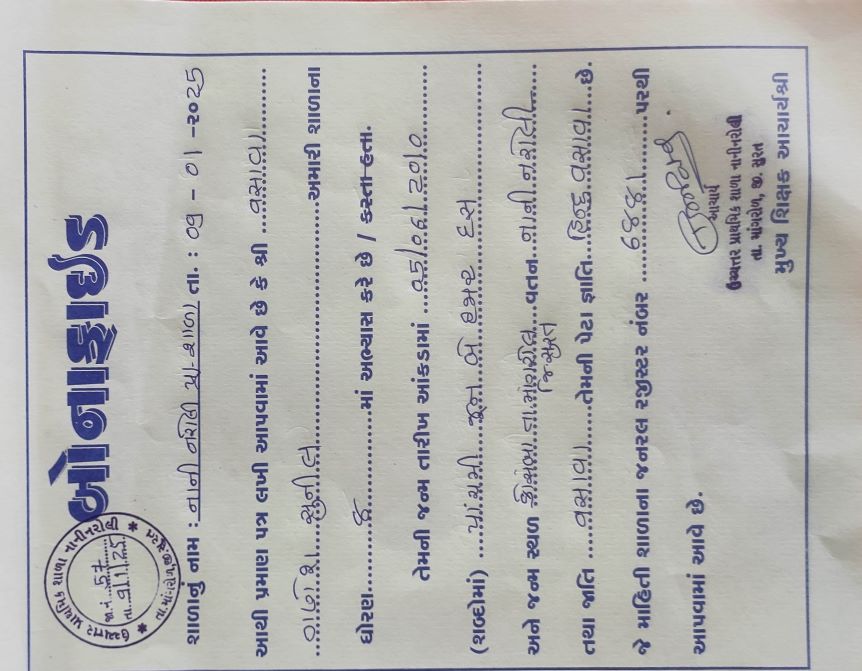 બોનાફાઈડ
ઉચ્ચત્તર પ્રાથમિક શાળા નાનીનરોલી
જા.નં. 57
તા. 9/1/25
તા.માંગરોળ, જી.સુરત
શાળાનું નામ : નાની નરોલી પ્રા. શાળા તા. : 09 - 01 - 2025
આથી પ્રમાણ પત્ર લખી આપવામાં આવે છે કે શ્રી ....વસાવા
સુનીલ ........ અમારી શાળાના
ધોરણ.....8.....માં અભ્યાસ કરે છે / કરતા હતા.
તેમની જન્મ તારીખ આંકડામાં ...05/06/2010
(શબ્દોમાં) ...પાંચમી જૂન બે હજાર દસ
અને જન્મ સ્થળ કોસંબા તા.માંગરોલ વતન...નાની નરોલી....
જિ.સુરત
તથા જાતિ ....વસાવા....તેમની પેટા જ્ઞાતિ...હિન્દુ વસાવા...છે.
જે માહિતી શાળાના જનરલ રજીસ્ટર નંબર ....6841....પરથી
આપવામાં આવે છે.
આચાર્ય
ઉચ્ચત્તર પ્રાથમિક શાળા નાનીનરોલી
તા. માંગરોળ, જી. સુરત
મુખ્ય શિક્ષક આચાર્યશ્રી